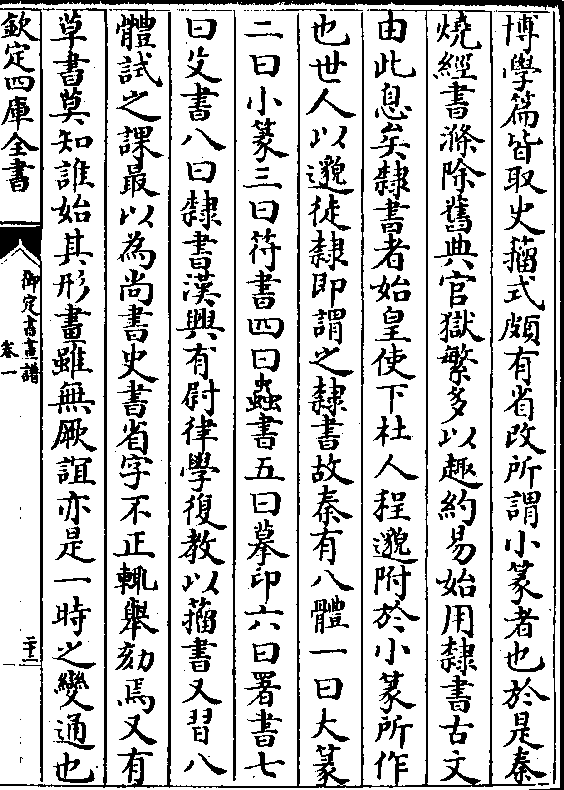 博學篇皆取史籀式頗有省改所謂小篆者也於是秦
燒經書滌除舊典官獄繁多以趣約易始用隸書古文
由此息矣隸書者始皇使下杜人程邈附於小篆所作
也世人以邈徒隸即謂之隸書故秦有八體一曰大篆
二曰小篆三曰符書四曰蟲書五曰摹印六曰署書七
曰殳書八曰隸書漢興有尉律學復教以籀書又習八
體試之課最以為尚書史書省字不正輒舉劾焉又有
草書莫知誰始其形畫雖無厥誼亦是一時之變通也
欽定四庫全書
御定書畫譜
卷一
二十二